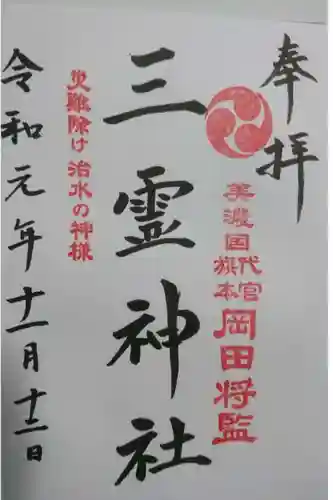 奉拝
美濃国
代官
旗本
岡田将監
三霊神社
災難除け 治水の神様
令和元年十一月十二日